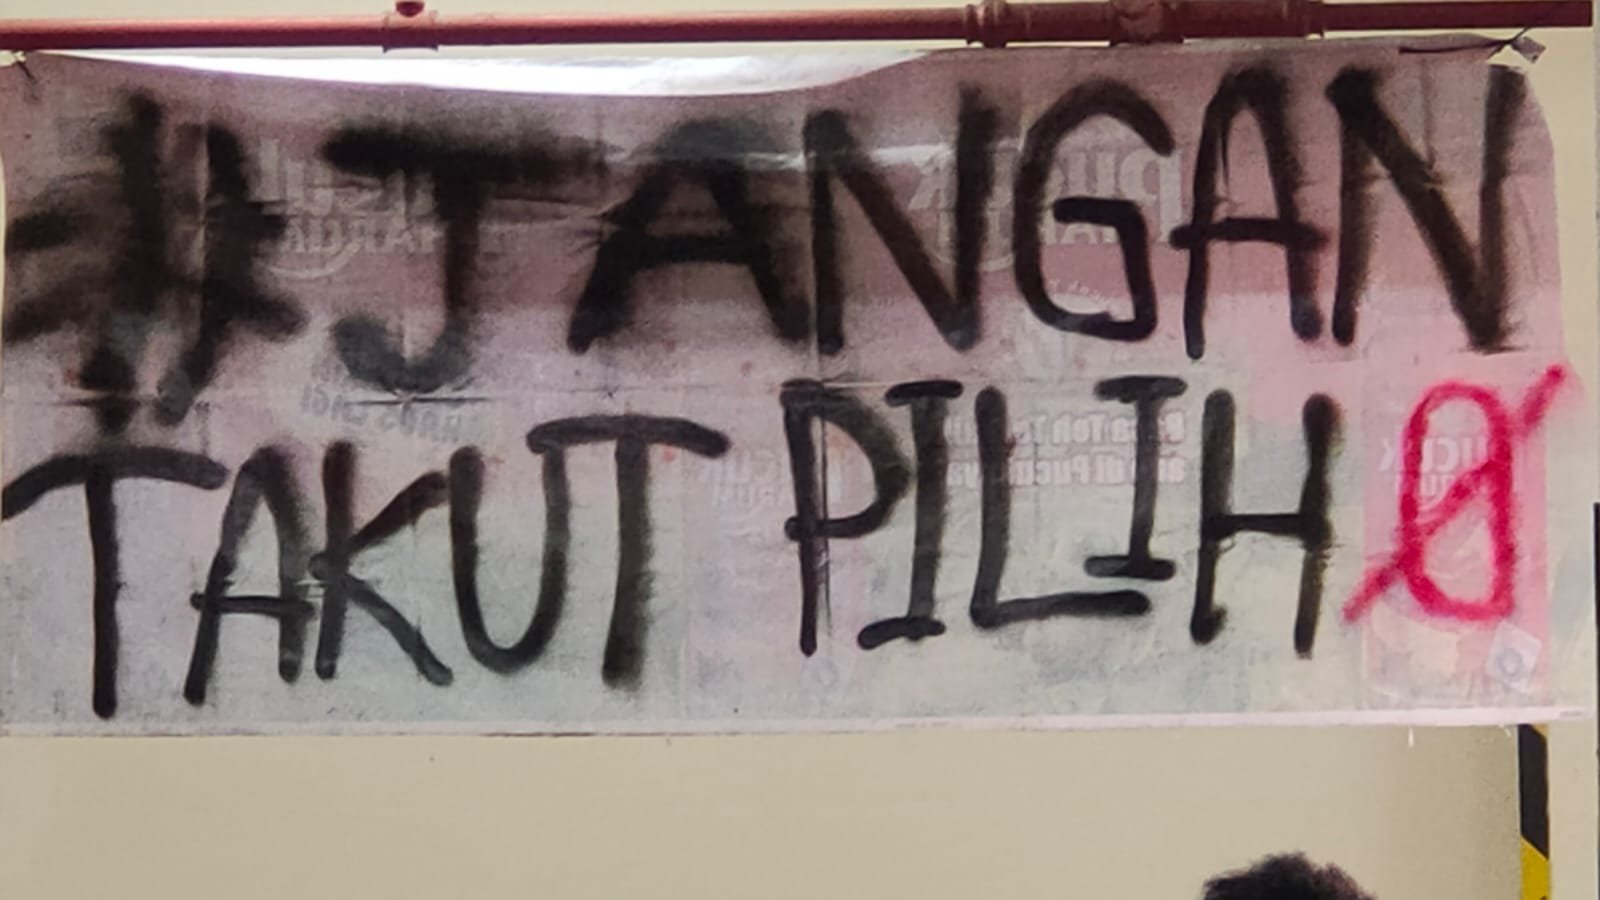 #JANGAN
TAKUT PILIH Ø